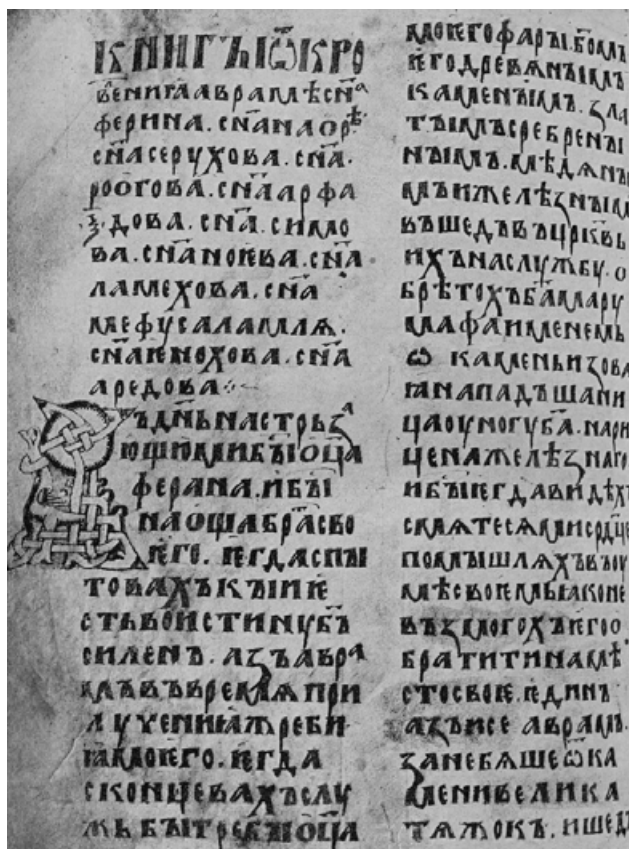 КНИГЪІ Ѿ КРО
ве҇ниꙗ аврамлѣ сн҃а
ферина. сн҃а наорѣ
сн҃а серухова. сн҃а.
роогова. сн҃а арфа
ѯдова. сн҃а. симо
ва. сн҃а ноѥва. сн҃а
ламехова. сн҃а
мефусаламлѧ.
сн҃а ѥнохова. сн҃а
аредова
Въ дн҃ь настрьз
ющю ми б҃ы ѡц҃а
ферана. и б҃ы
на оц҃а браⷮ сво
ѥго. ѥгда испы
товахъ кыи ѥ
сть воистину б҃ъ
силенъ. азъ авра
мъ въ времѧ при
лучениꙗ жреби
ꙗ моѥго. ѥгда
сконцевахъ слу
жьбы требы оц҃а
моѥго фары. б҃омъ
ѥго древѧнымъ
каменымъ. зла
тымъ сребрены
нымъ. мѣдѧны
мъ и желѣзным
въшедъ в црк҃вь
ихъ на службу. о
брѣтохъ б҃а мару
мафа именемь
ѡ каменьи зова
ꙗна падъша ни
ца оу ногу б҃а. нари
цена желѣзнаго
и бы ѥгда видѣхъ
скмѧтесѧ ми сордце
помышлѧхъ въ оу
мѣ своемь ꙗко не
възмогохъ ѥго о
братити на мѣ
сто своѥ. ѥдинъ
азъ исе аврамъ.
зане бѧше ѿ ка
мени велика
тѧжокъ. и шедъ